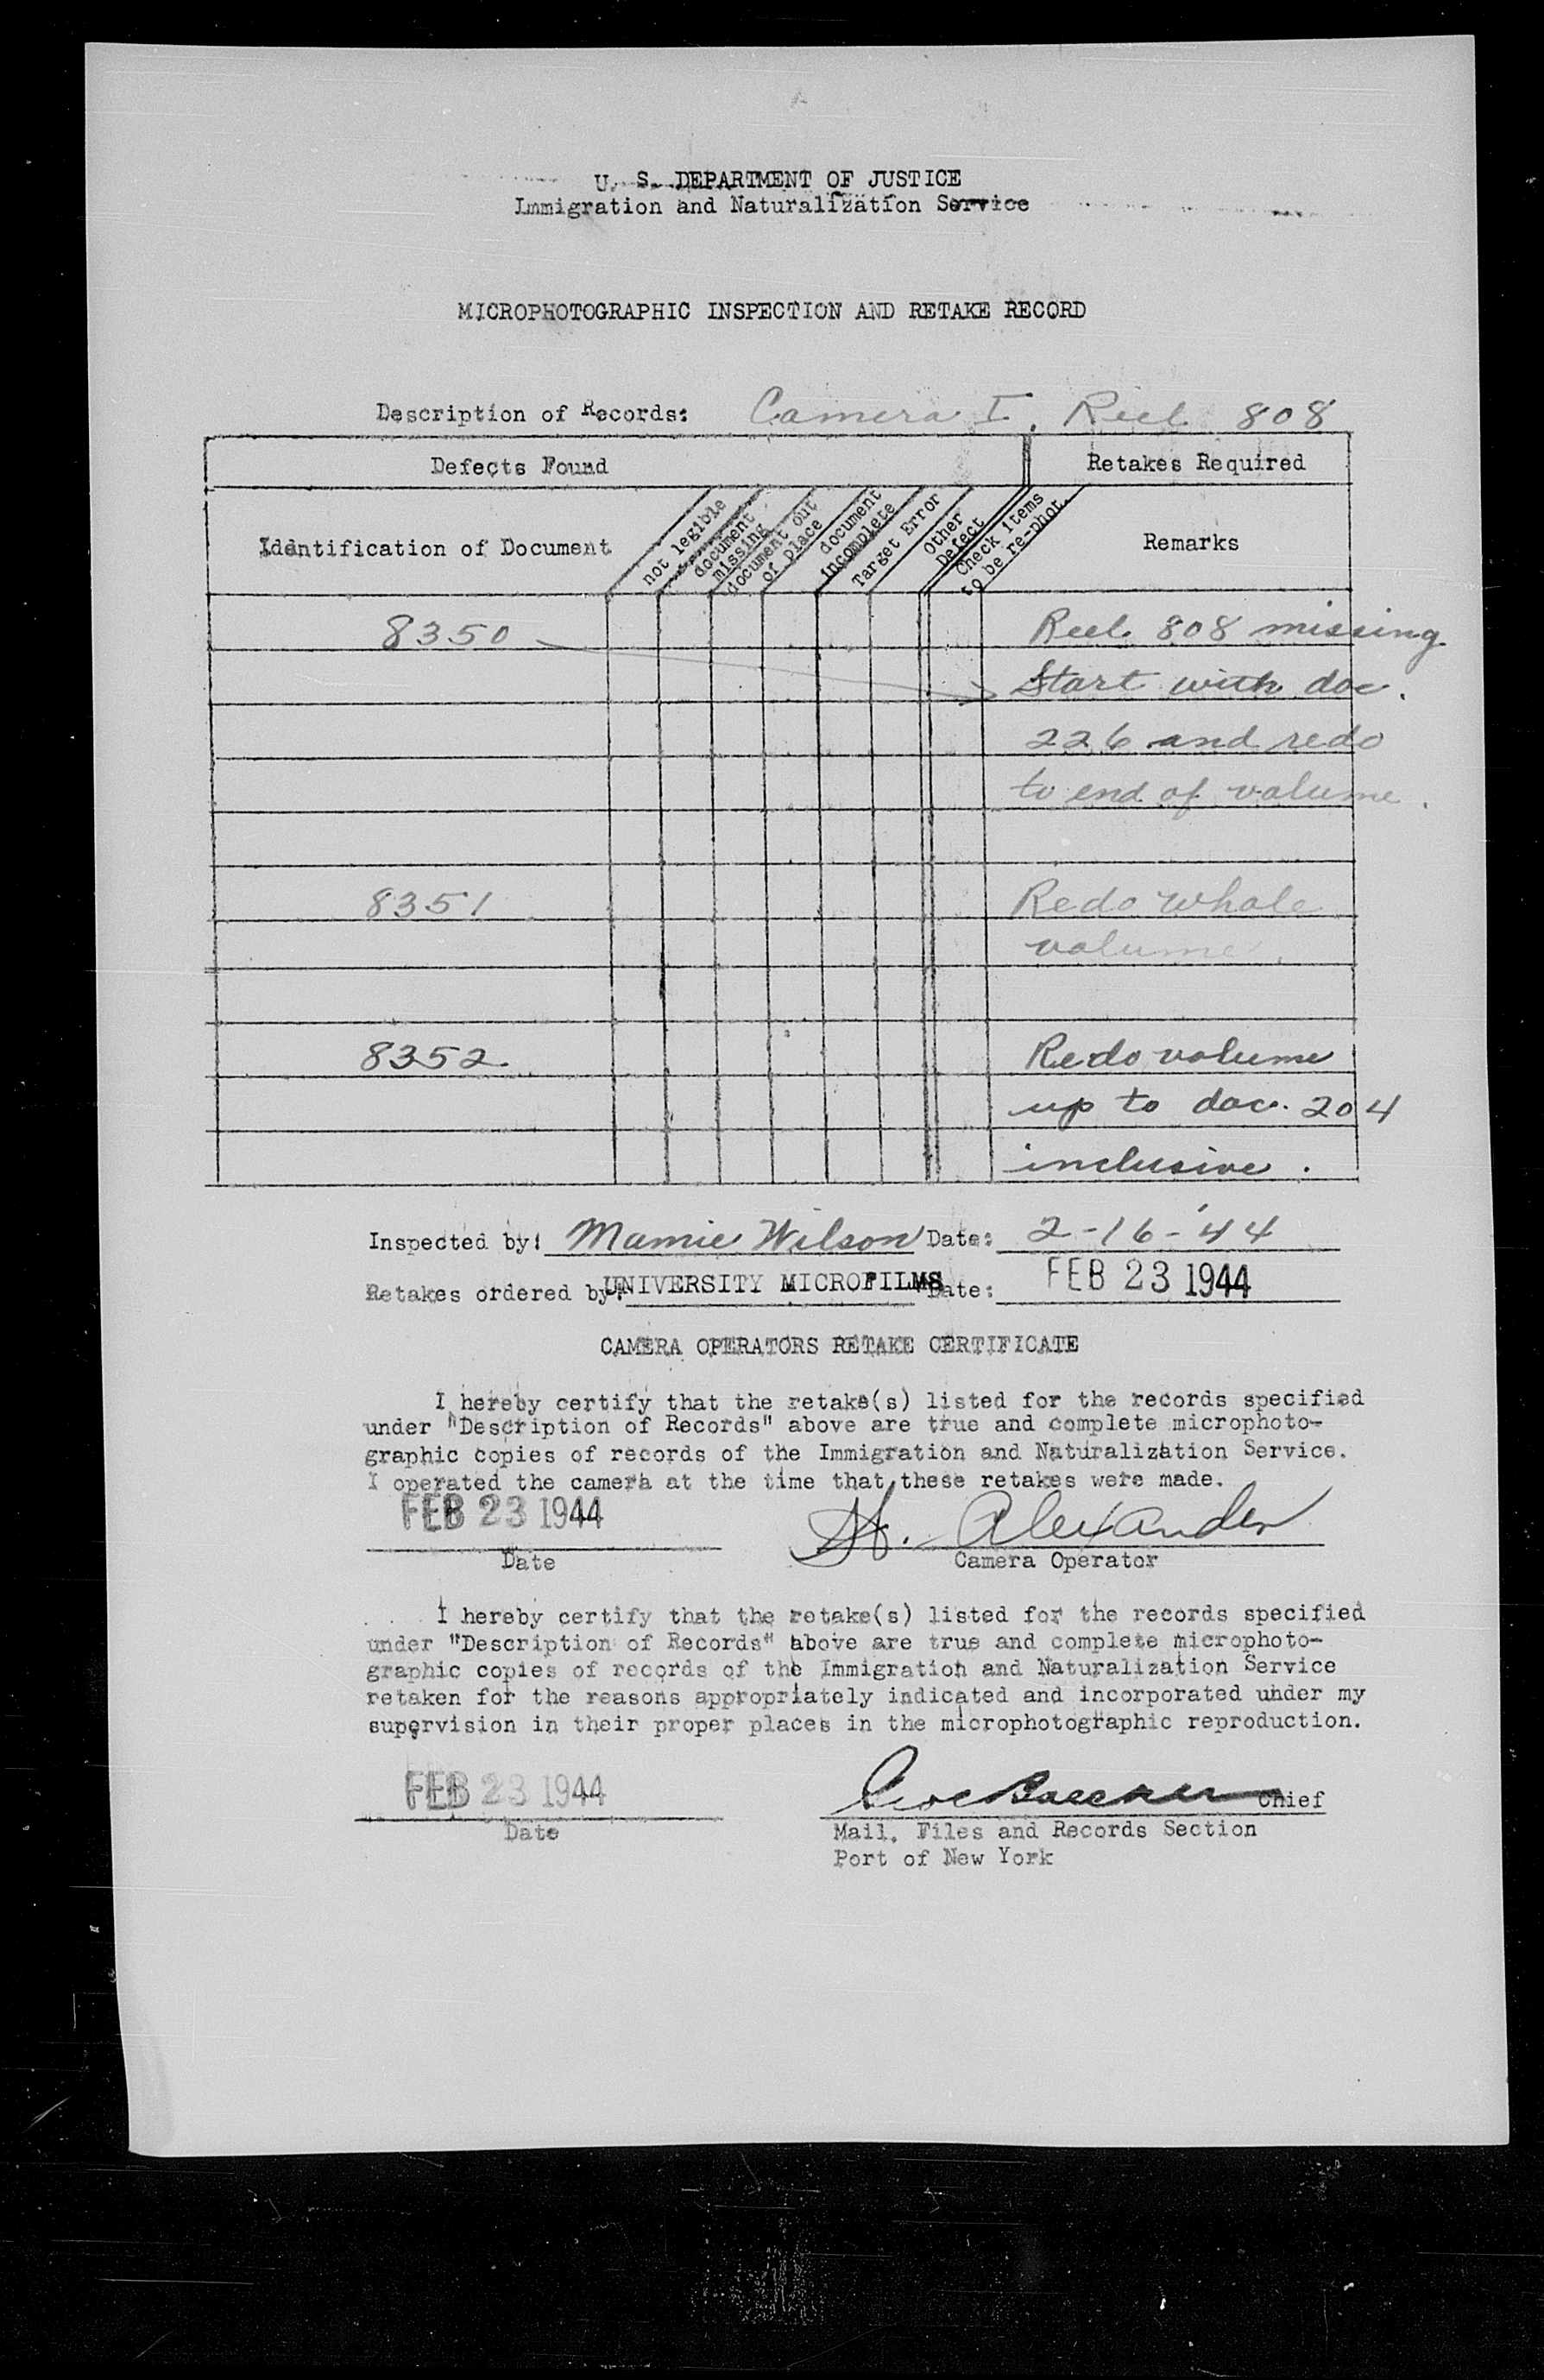 U. S. DEPARTMENT OF JUSTICE
Immigration and Naturalization Service
MICROPHOTOGRAPHIC INSPECTION AND RETAKE RECORD
Description of Records: Camera I. Reel 808
Defects Found
Retakes Required
Identification of Document
not legible
document missing
document out of place
document incomplete
Target Error
Other Defect
Check items to be re-phot.
Remarks
8350 Reel 808 missing
Start with doc.
226 and redo
to end of volume.
8351 Redo whole
volume.
8352. Redo volume
up to doc. 204
inclusive.
Inspected by: Mamie Wilson Date: 2-16-'44
Retakes ordered by: UNIVERSITY MICROFILMS Date: FEB 23 1944
CAMERA OPERATORS RETAKE CERTIFICATE
I hereby certify that the retake(s) listed for the records specified
under "Description of Records" above are true and complete microphoto-
graphic copies of records of the Immigration and Naturalization Service.
I operated the camera at the time that these retakes were made.
FEB 23 1944 H. Alexander
Date Camera Operator
I hereby certify that the retake(s) listed for the records specified
under "Description of Records" above are true and complete microphoto-
graphic copies of records of the Immigration and Naturalization Service
retaken for the reasons appropriately indicated and incorporated under my
supervision in their proper places in the microphotographic reproduction.
FEB 23 1944 Chief
Date Mail, Files and Records Section
Port of New York